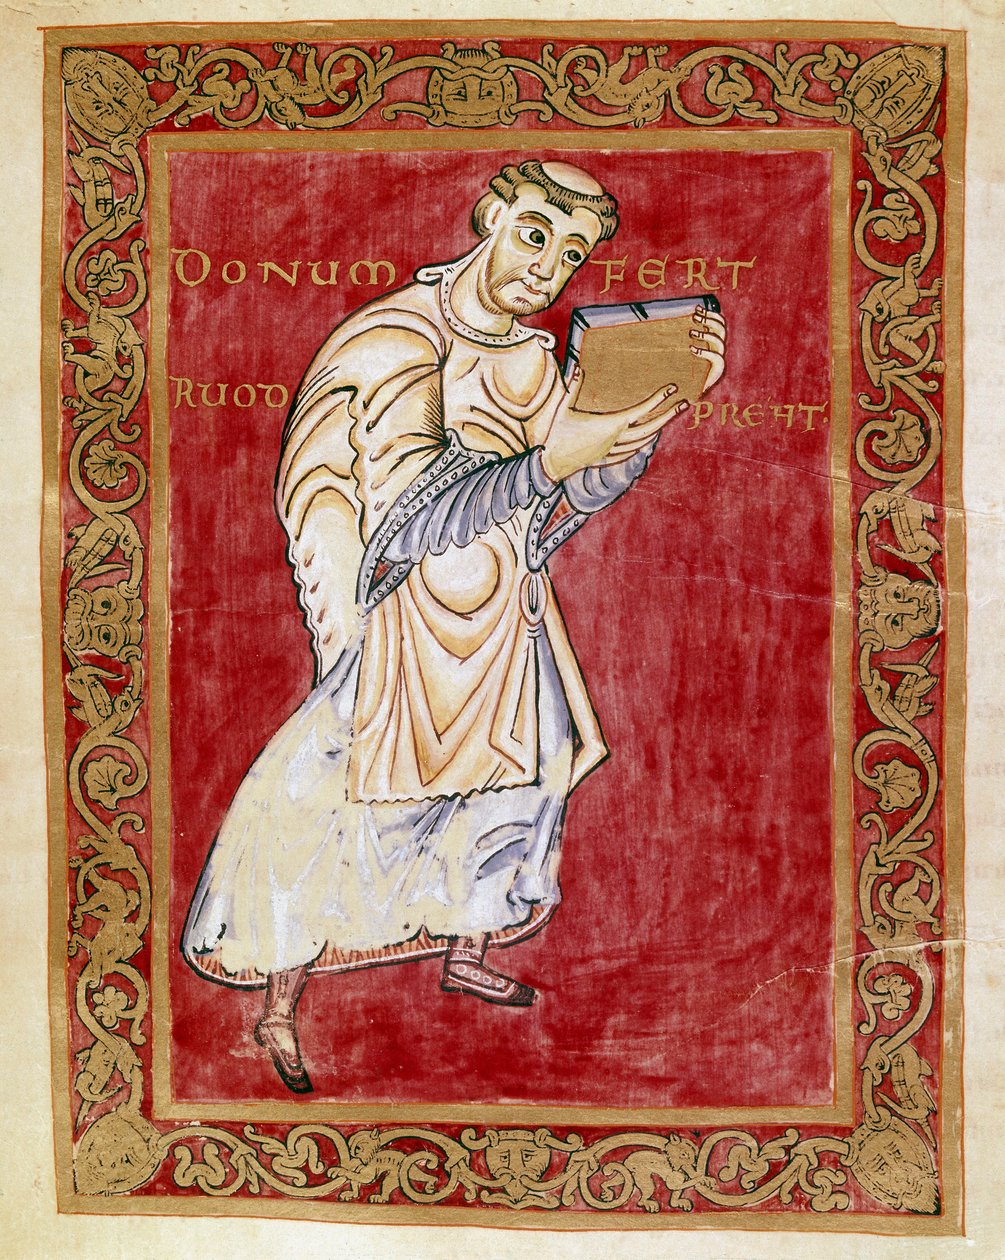 DONUM FERT
RUOD PREHT·